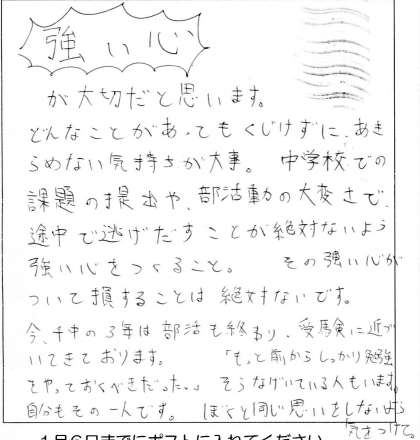 強い心
が大切だと思います。
どんなことがあってもくじけずに、あき
らめない気持ちが大事。 中学校での
課題の提出や、部活動の大変さで、
途中で逃げだすことが絶対ないよう
強い心をつくること。 その強い心が
ついて損することは絶対ないです。
今、千中の3年は部活も終わり、受験に近づ
いてきております。 「もっと前からしっかり勉強
をやっておくべきだった。」そうなげいている人もいます。
自分もその一人です。 ぼくと同じ思いをしないよう
気をつけて。
1月6日までにポストに入れてください